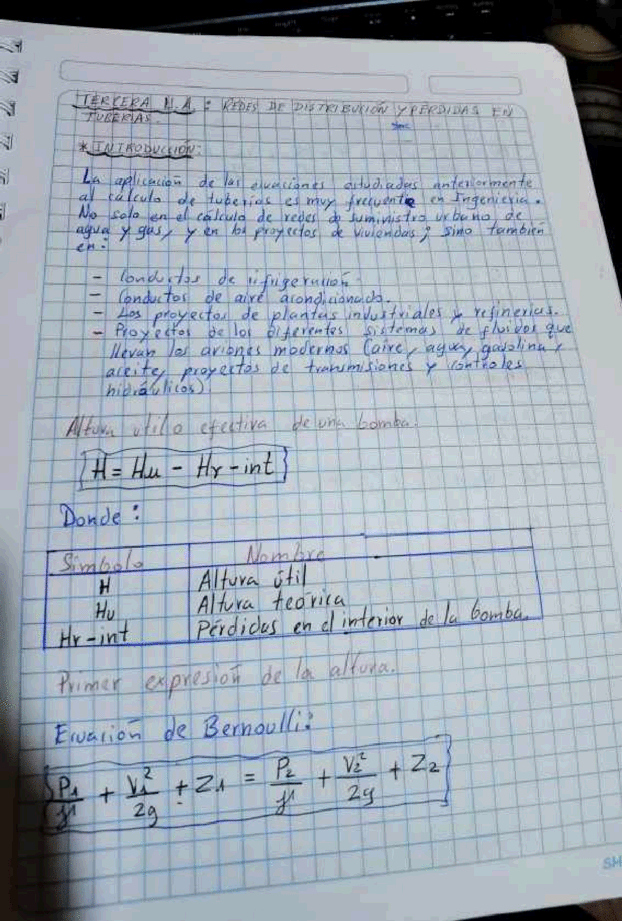 TERCERA N.A : REDES DE DISTRIBUCIÓN Y PÉRDIDAS EN
TUBERIAS.
* INTRODUCCIÓN:
La aplicación de las ecuaciones estudiadas anteriormente
al cálculo de tuberias es muy frecuente en Ingenieria.
No solo en el cálculo de redes de suministro urbano de
agua y gas, y en los proyectos de viviendas; sino también
en:
- Conductos de rifrigeración.
- Conductos de aire acondicionado.
- Los proyectos de plantas industriales y refinerias.
- Proyectos de los diferentes sistemas de fluidos que
llevan los aviones modernos (aire, agua, gasolina,
aceite, proyectos de transmisiones y controles
hidráulicos)
Altura util o efectiva de una bomba.
H = Hu - Hr-int
Donde:
Simbolo Nombre
H Altura útil
Hu Altura teórica
Hr-int Pérdidas en el interior de la bomba.
Primer expresión de la altura.
Ecuación de Bernoulli:
P₁/γ + V₁²/2g + Z₁ = P₂/γ + V₂²/2g + Z₂
SM